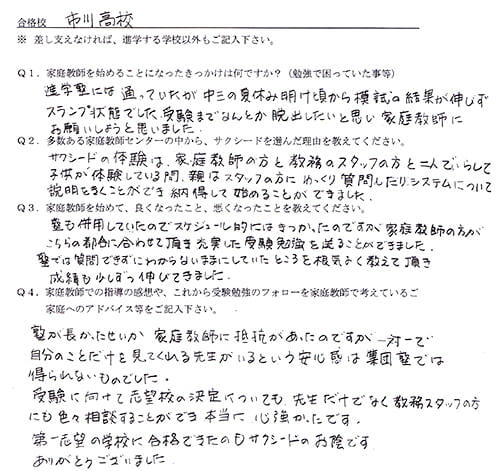 合格校 市川高校
※ 差し支えなければ、進学する学校以外もご記入下さい。
Q１．家庭教師を始めることになったきっかけは何ですか？（勉強で困っていた事等）
進学塾には通っていたが中三の夏休み明け頃から模試の結果が伸びず
スランプ状態でした。受験までなんとか脱出したいと思い家庭教師に
お願いしようと思いました。
Q２．多数ある家庭教師センターの中から、サクシードを選んだ理由を教えてください。
サクシードの体験は、家庭教師の方と教務のスタッフの方と二人でいらして
子供が体験している間、親はスタッフの方にゆっくり質問したりシステムについて
説明をきくことができ納得して始めることができました。
Q３．家庭教師を始めて、良くなったこと、悪くなったことを教えてください。
塾も併用していたのでスケジュール的にはきつかったのですが家庭教師の方が
こちらの都合に合わせて頂き充実した受験勉強を送ることができました。
塾では質問できずにわからないままにしていたところを根気よく教えて頂き
成績も少しずつ伸びてきました。
Q４．家庭教師での指導の感想や、これから受験勉強のフォローを家庭教師で考えているご
家庭へのアドバイス等をご記入下さい。
塾が長かったせいか家庭教師に抵抗があったのですが一対一で
自分のことだけを見てくれる先生がいるという安心感は集団塾では
得られないものでした。
受験に向けて志望校の決定についても先生だけでなく教務スタッフの方
にも色々相談することができ本当に心強かったです。
第一志望の学校に合格できたのもサクシードのお陰です
ありがとうございました